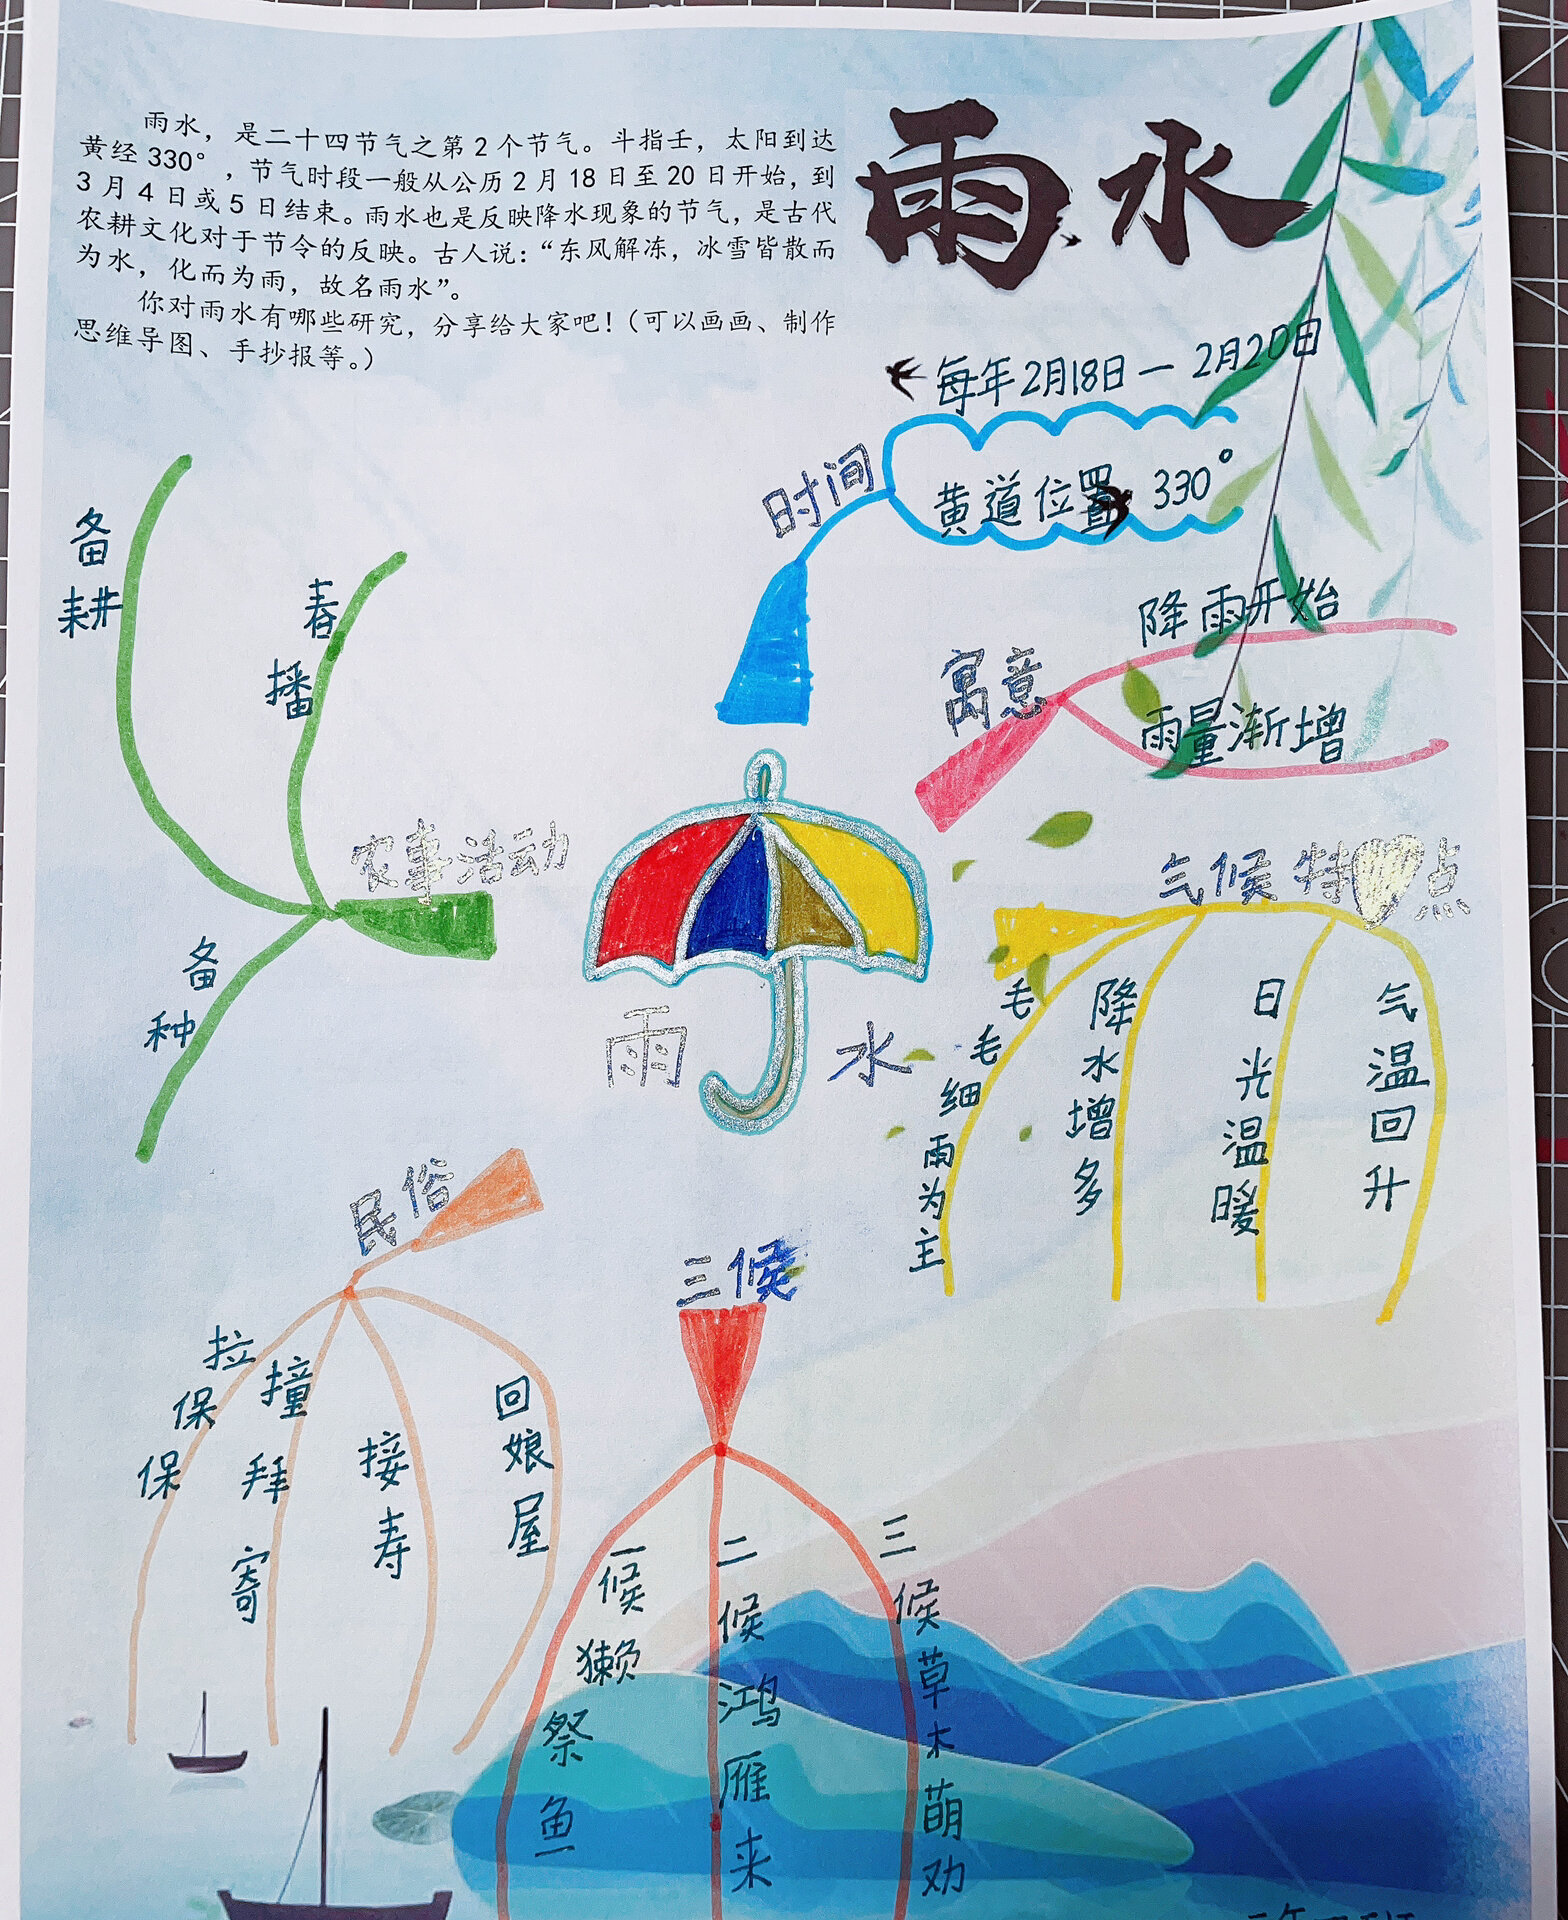 雨水
雨水，是二十四节气之第2个节气。斗指壬，太阳到达
黄经330°，节气时段一般从公历2月18日至20日开始，到
3月4日或5日结束。雨水也是反映降水现象的节气，是古代
农耕文化对于节令的反映。古人说：“东风解冻，冰雪皆散而
为水，化而为雨，故名雨水”。
你对雨水有哪些研究，分享给大家吧！（可以画画、制作
思维导图、手抄报等。）
时间
每年2月18日一2月20日
黄道位置 330°
寓意
降雨开始
雨量渐增
农事活动
备耕
春播
备种
雨水
气候特点
毛毛细雨为主
降水增多
日光温暖
气温回升
民俗
拉保保
撞拜寄
接寿
回娘屋
三候
一候獭祭鱼
二候鸿雁来
三候草木萌劝